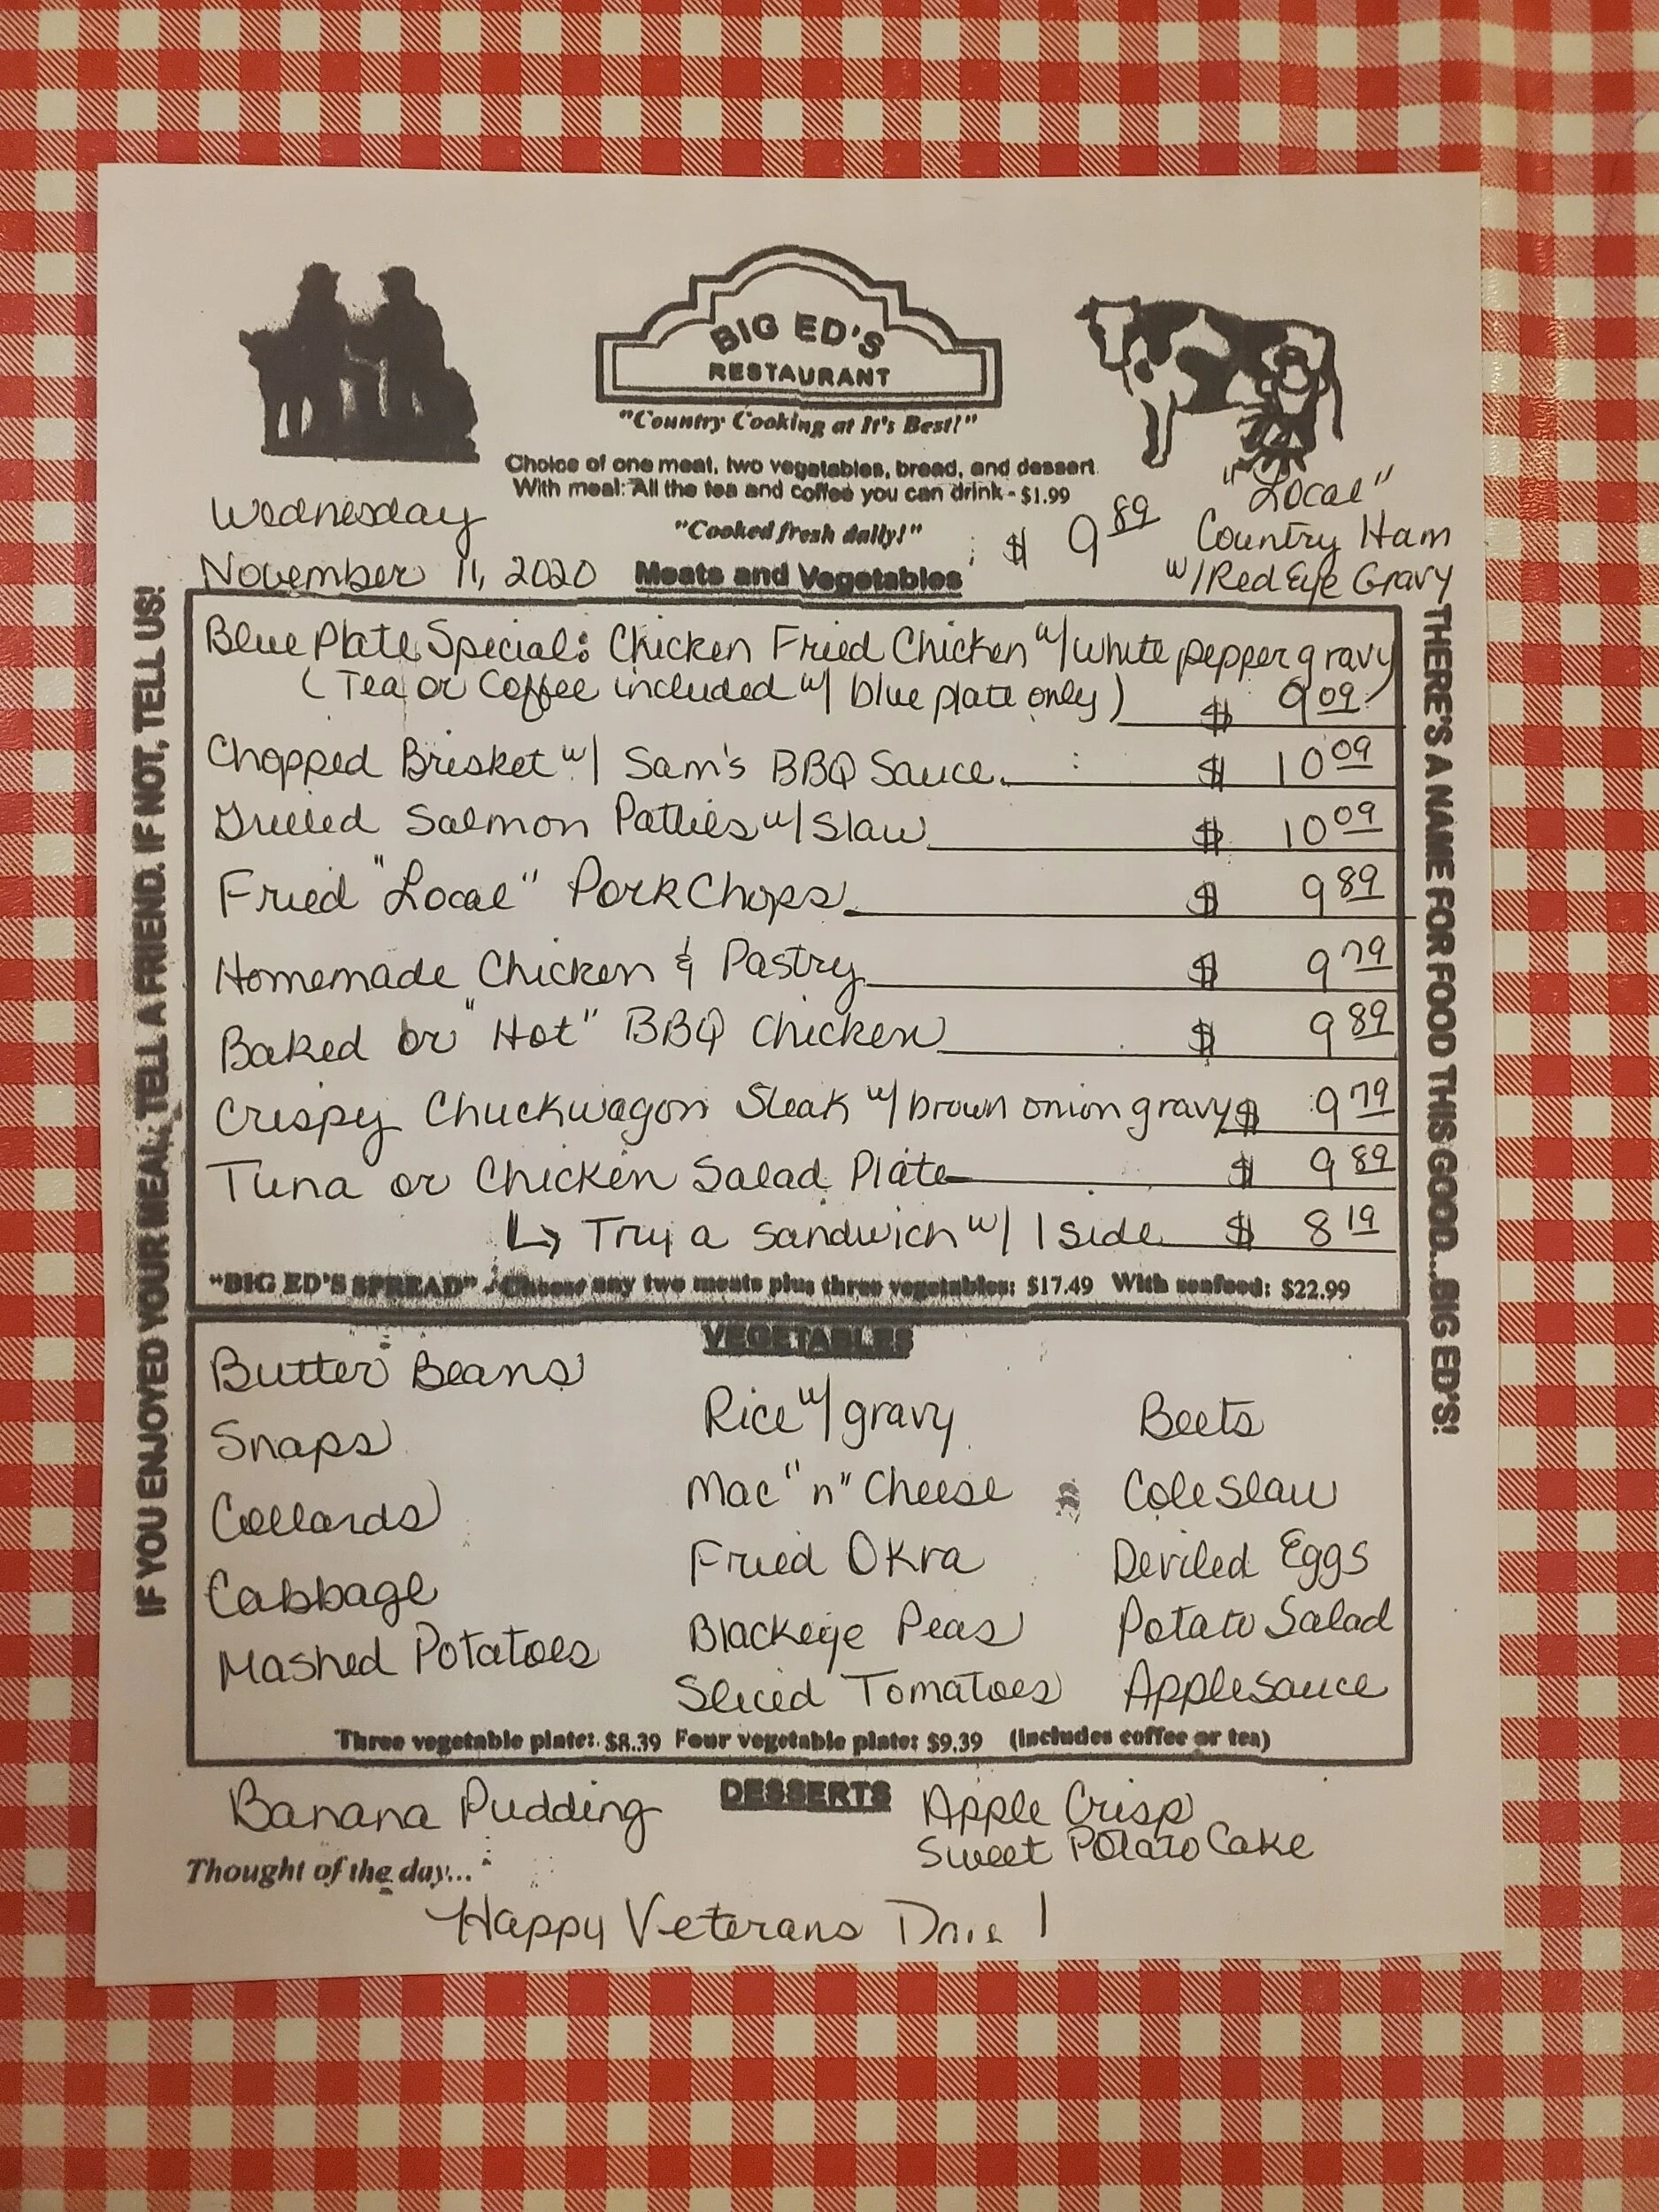 BIG ED'S
RESTAURANT
"Country Cooking at It's Best!"
Choice of one meat, two vegetables, bread, and dessert
With meal: All the tea and coffee you can drink - $1.99
"Cooked fresh daily!"
Wednesday
November 11, 2020
Meats and Vegetables
$ 9 89
"Local"
Country Ham
w/Red Eye Gravy
IF YOU ENJOYED YOUR MEAL, TELL A FRIEND. IF NOT, TELL US!
Blue Plate Special: Chicken Fried Chicken w/white pepper gravy
(Tea or Coffee included w/ blue plate only) $ 9 09
Chopped Brisket w/ Sam's BBQ Sauce $ 10 09
Grilled Salmon Patties w/slaw $ 10 09
Fried "Local" Pork Chops $ 9 89
Homemade Chicken & Pastry $ 9 79
Baked or "Hot" BBQ Chicken $ 9 89
Crispy Chuckwagon Steak w/brown onion gravy $ 9 79
Tuna or Chicken Salad Plate $ 9 89
↳ Try a sandwich w/ 1 side $ 8 19
"BIG ED'S SPREAD" - Choose any two meats plus three vegetables: $17.49 With seafood: $22.99
THERE'S A NAME FOR FOOD THIS GOOD...BIG ED'S!
VEGETABLES
Butter Beans
Snaps
Collards
Cabbage
Mashed Potatoes
Rice w/gravy
Mac "n" Cheese
Fried Okra
Blackeye Peas
Sliced Tomatoes
Beets
Cole Slaw
Deviled Eggs
Potato Salad
Applesauce
Three vegetable plate: $8.39 Four vegetable plate: $9.39 (Includes coffee or tea)
DESSERTS
Banana Pudding
Apple Crisp
Sweet Potato Cake
Thought of the day...
Happy Veterans !